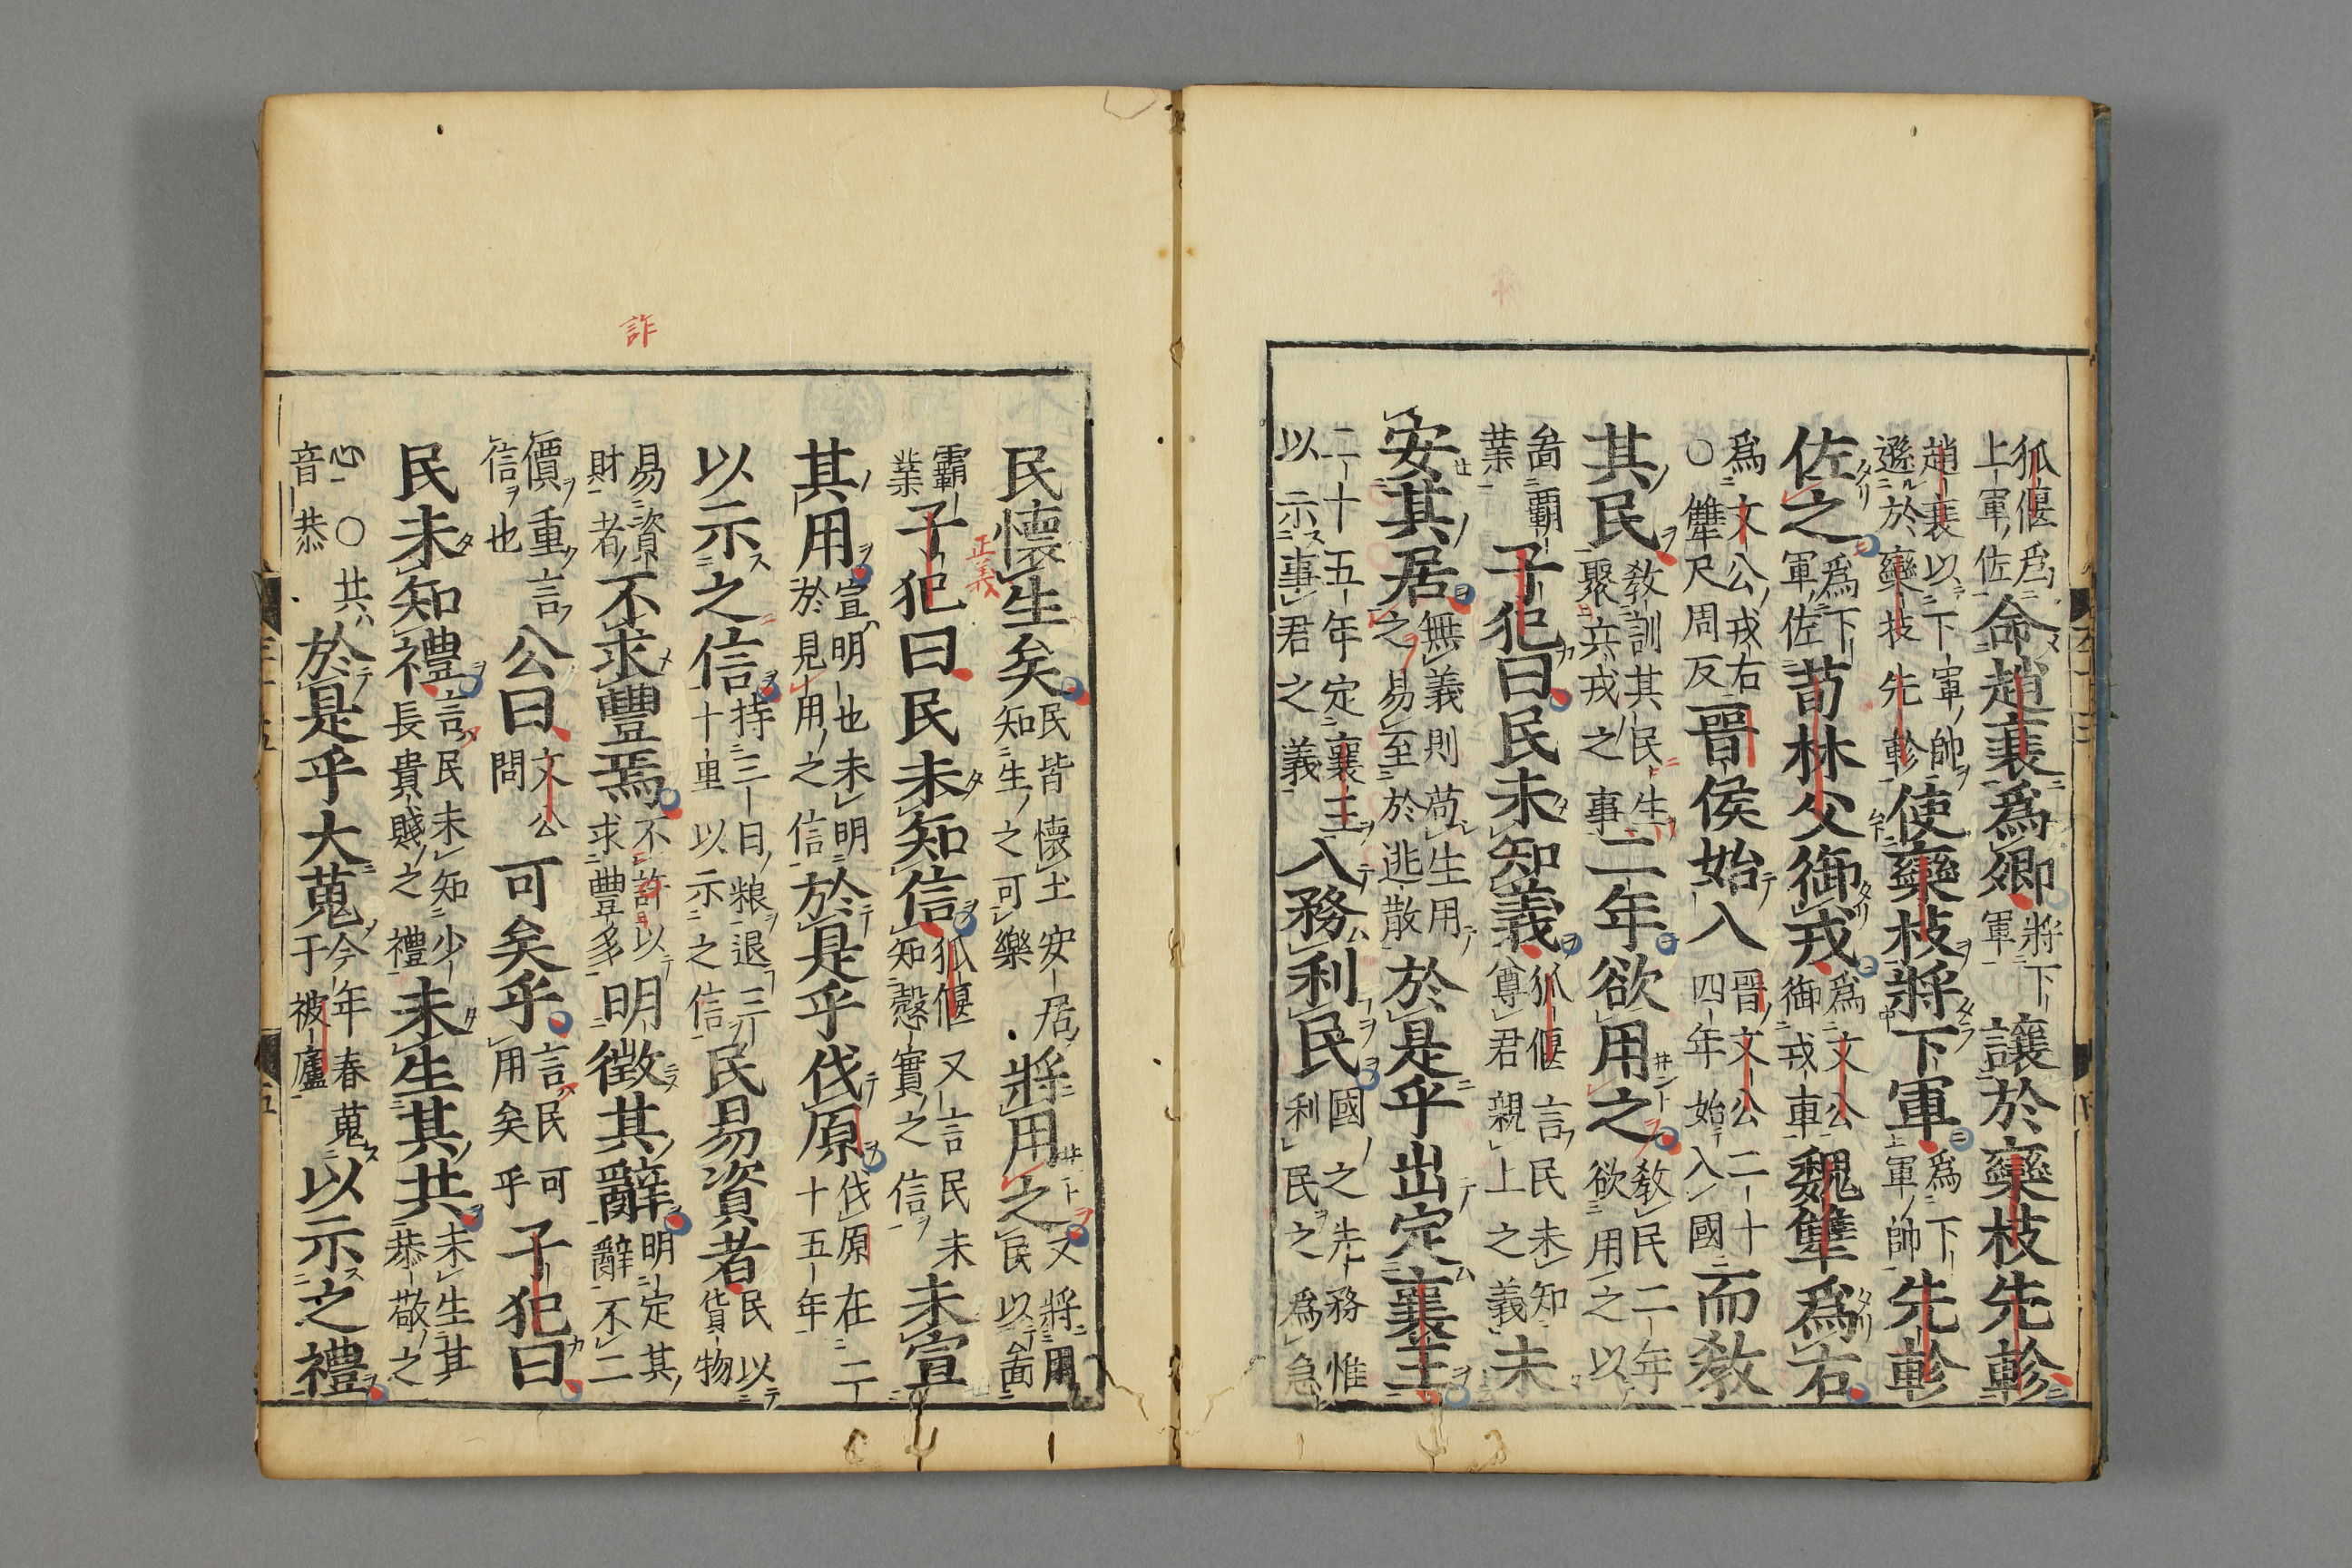 狐偃爲上軍佐命趙衰爲卿將下軍讓於欒枝先軫
趙衰以下軍帥遜於欒技先軫使欒枝將下軍爲下軍帥先軫
佐之爲下軍佐荀林父御戎爲文公御戎車魏犨爲右
爲文公戎右〇犨尺周反晋侯始入晋文公二十四年始入國而敎
其民敎訓其民聚兵戎之事二年欲用之敎民二年欲用之以
啚覇業子犯曰民未知義狐偃言民未知尊君親上之義未
安其居無義則苟生用之易至於逃散於是乎出定襄王
二十五年定襄王以示事君之義入務利民國之先務惟利民之爲急
民懷生矣民皆懷土安居知生之可樂將用之又將用民以啚
霸業子犯曰民未知信狐偃又言民未知慤實之信未宣
正義
其用宣明也未明於見用之信於是乎伐原伐原在二十五年
以示之信持三日粮退三十里以示之信民易資者民以貨物
易資財者不求豐焉不許以求豐多明徵其辭明定其辭不二
詐
價重言信也公曰文公問可矣乎言民可用矣乎子犯曰
民未知禮言民未知少長貴賤之禮未生其共未生其恭敬之
心〇共音恭於是乎大蒐今年春蒐于被廬以示之禮